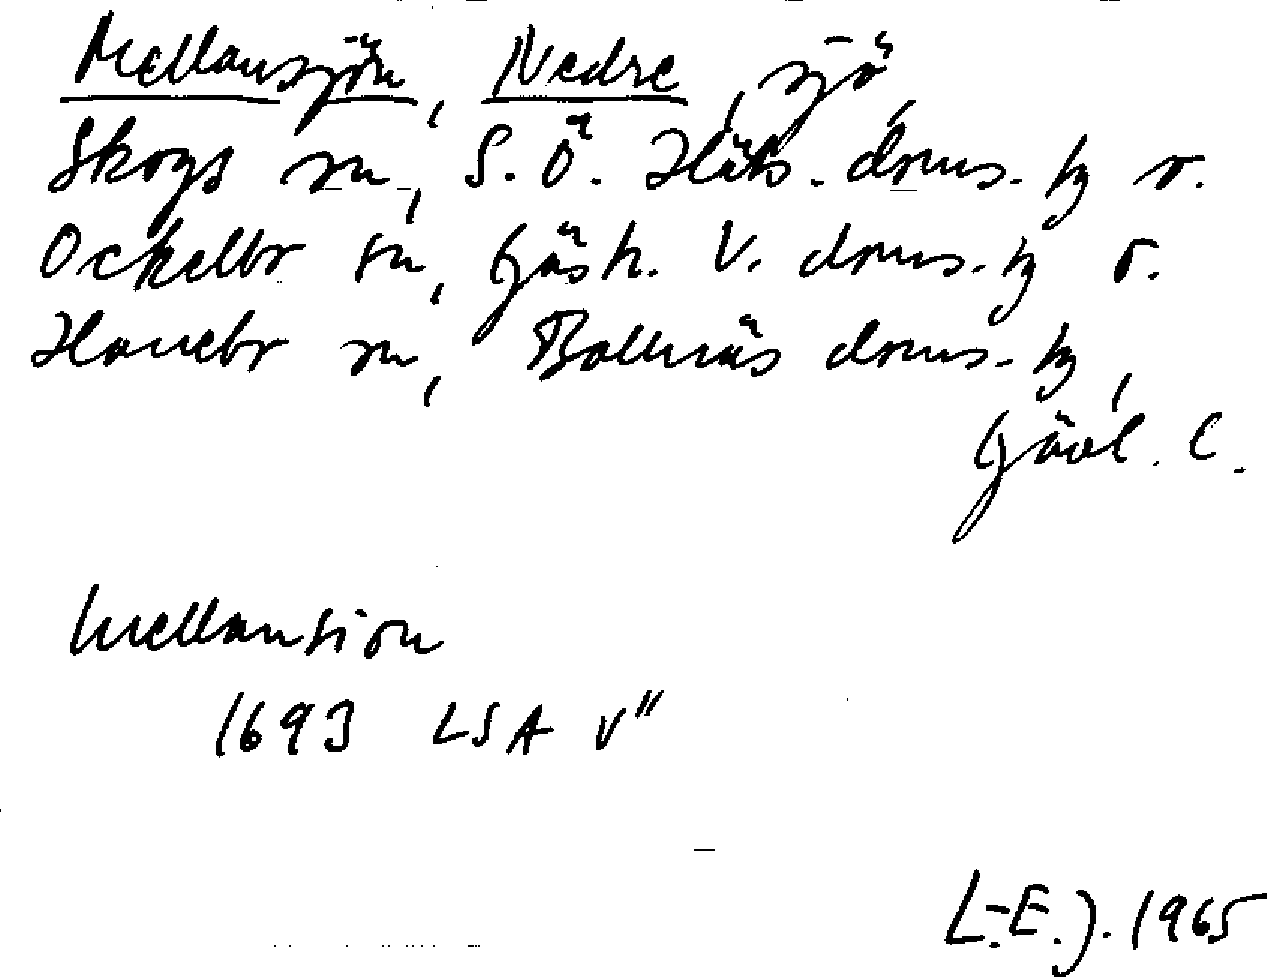 Mellansjön, Nedre, sjö,
Skogs sn, S. Ö. Häls. doms. tg o.
Ockelbo sn, Gästr. V. doms. tg o.
Hanebo sn, Bollnäs doms. tg,
Gävl. l.
Mellansion
1693 LSA V"
L.-E. J. 1965